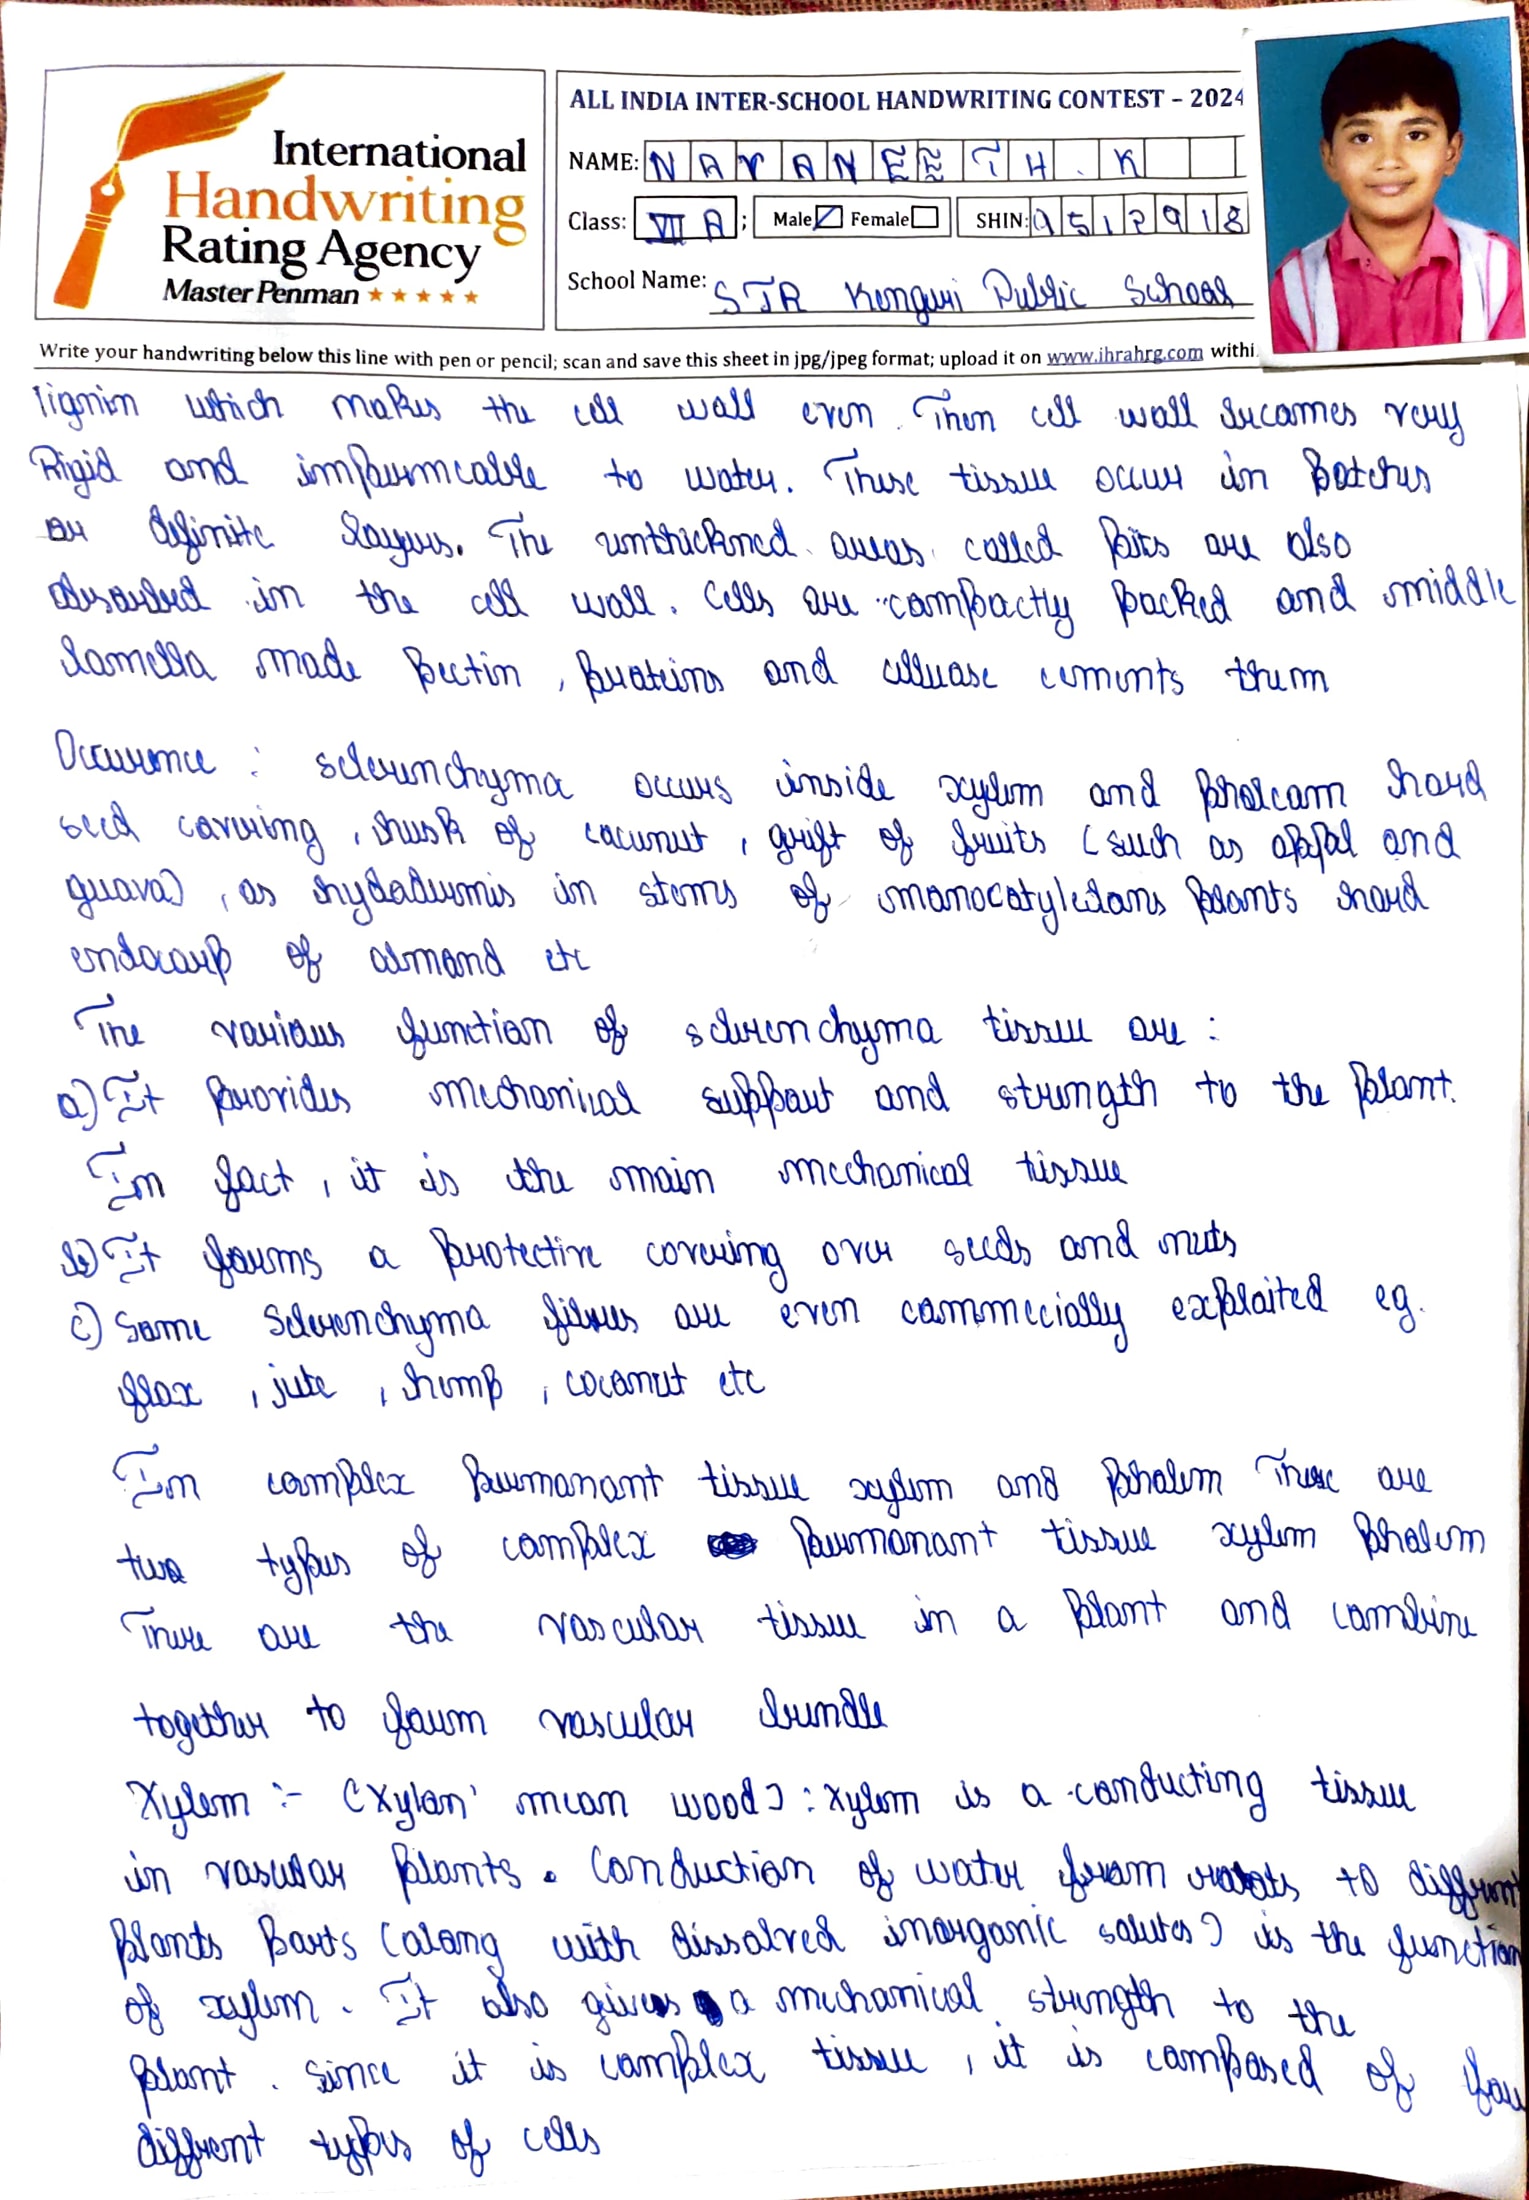 International
Handwriting
Rating Agency
Master Penman
ALL INDIA INTER-SCHOOL HANDWRITING CONTEST - 2024
NAME: NAVANEETH.K
Class: VII A ; Male Female SHIN: 9512918
School Name: STR Kenguri Public School
Write your handwriting below this line with pen or pencil; scan and save this sheet in jpg/jpeg format; upload it on www.ihrahrg.com withi
lignin which makes the cell wall even. Then cell wall becomes very
Rigid and impermeable to water. These tissue occur in Patches
or definite layers. The unthickned areas called pits are also
absorbed in the cell wall. Cells are compactly packed and middle
lamella made pectin, proteins and celluase cements them
Occurence : sclerenchyma occurs inside xylem and pholeam hard
seed covering, husk of cocunut, grift of fruits (such as appal and
guava), as hydodermis in stems of monocotyledons plants hard
endocarp of almond etc
The various function of sclerenchyma tissue are :
a) It provides mechanical support and strength to the plant.
In fact, it is the main mechanical tissue
b) It forms a protective covering over seeds and nuts
c) Some Sclerenchyma fibres are even commecially exploited eg.
flax, jute, hemp, coconut etc
In complex permanant tissue xylem and pholem These are
two types of complex permanant tissue xylem pholem
There are the vascular tissue in a plant and combine
together to form vascular bundle
Xylem :- (Xylon' mean wood) : xylem is a conducting tissue
in vascular plants. Conduction of water from roots to diffrent
plants parts (along with dissolved inorganic solutes) is the function
of xylem. It also gives a mechanical strength to the
plant. Since it is complex tissue, it is composed of fou
diffrent types of cells